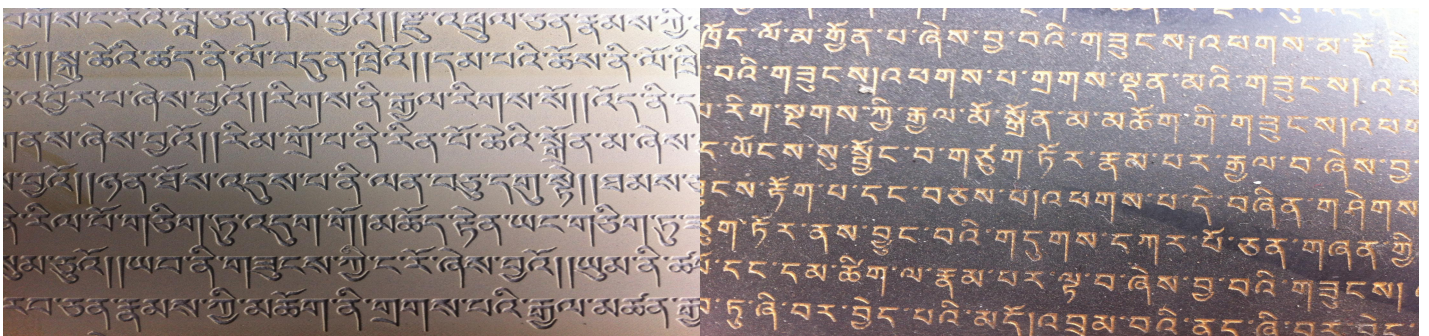 ར་བའི་བློ་ཅན་བྱའོ།།རྫུ་འཕྲུལ་ཅན་རྣམས་ཀྱི་
མོ།།སྐུ་ཚེའི་ཚད་ནི་ལོ་བདུན་ཁྲིའོ།།དམ་པའི་ཆོས་ནི་ལོ་ཁྲི
འབྱོར་པ་ཞེས་བྱའོ།།རིགས་ནི་རྒྱལ་རིགས་སོ།།འོད་ནི་ད
གནས་ཞེས་བྱའོ།།རིམ་གྲོ་པ་ནི་རིན་པོ་ཆེའི་སྒྲོན་མ་ཞེས་
བྱའོ།།ཉན་ཐོས་འདུས་པ་ནི་ལན་བརྒྱད་དགུ་སྟེ།།ཐམས་ཅ
རིལ་པོ་གཅིག་ཏུ་འདུག་གོ།།མཆོད་རྟེན་ཡང་གཅིག་ཏུ་
སུམ་ཅུའོ།།ཡབ་ནི་གཟུངས་ཀྱི་ང་རོ་ཞེས་བྱའོ།།ཡུམ་ནི་ཚ
རབ་ཅན་རྣམས་ཀྱི་མཆོག་ནི་གྲགས་པའི་རྒྱལ་མཚན་
ཁྲོད་ལོ་མ་གྱོན་པ་ཞེས་བྱ་བའི་གཟུངས།འཕགས་མ་རྡོ་རྗེ
བའི་གཟུངས།འཕགས་པ་གྲགས་ལྡན་མའི་གཟུངས།འཕ
རིག་སྔགས་ཀྱི་རྒྱལ་མོ་སྒྲོན་མ་མཆོག་གི་གཟུངས།འཕག
ཡོངས་སུ་སྦྱོང་བ་གཙུག་ཏོར་རྣམ་པར་རྒྱལ་བ་ཞེས་བྱ་
ངས་རྟོག་པ་དང་བཅས་པ།འཕགས་པ་དེ་བཞིན་གཤེགས་
ཙུག་ཏོར་ནས་བྱུང་བའི་གདུགས་དཀར་པོ་ཅན་གཞན་གྱི
དང་དམ་ཚིག་ལ་རྣམ་པར་ལྟ་བ་ཞེས་བྱ་བའི་གཟུངས།
ཏུ་ཞི་བར་བྱེད་པའི་མདོ།འབྲུམ་བའི་ནད་ཞི་བར་བྱེད་པའི